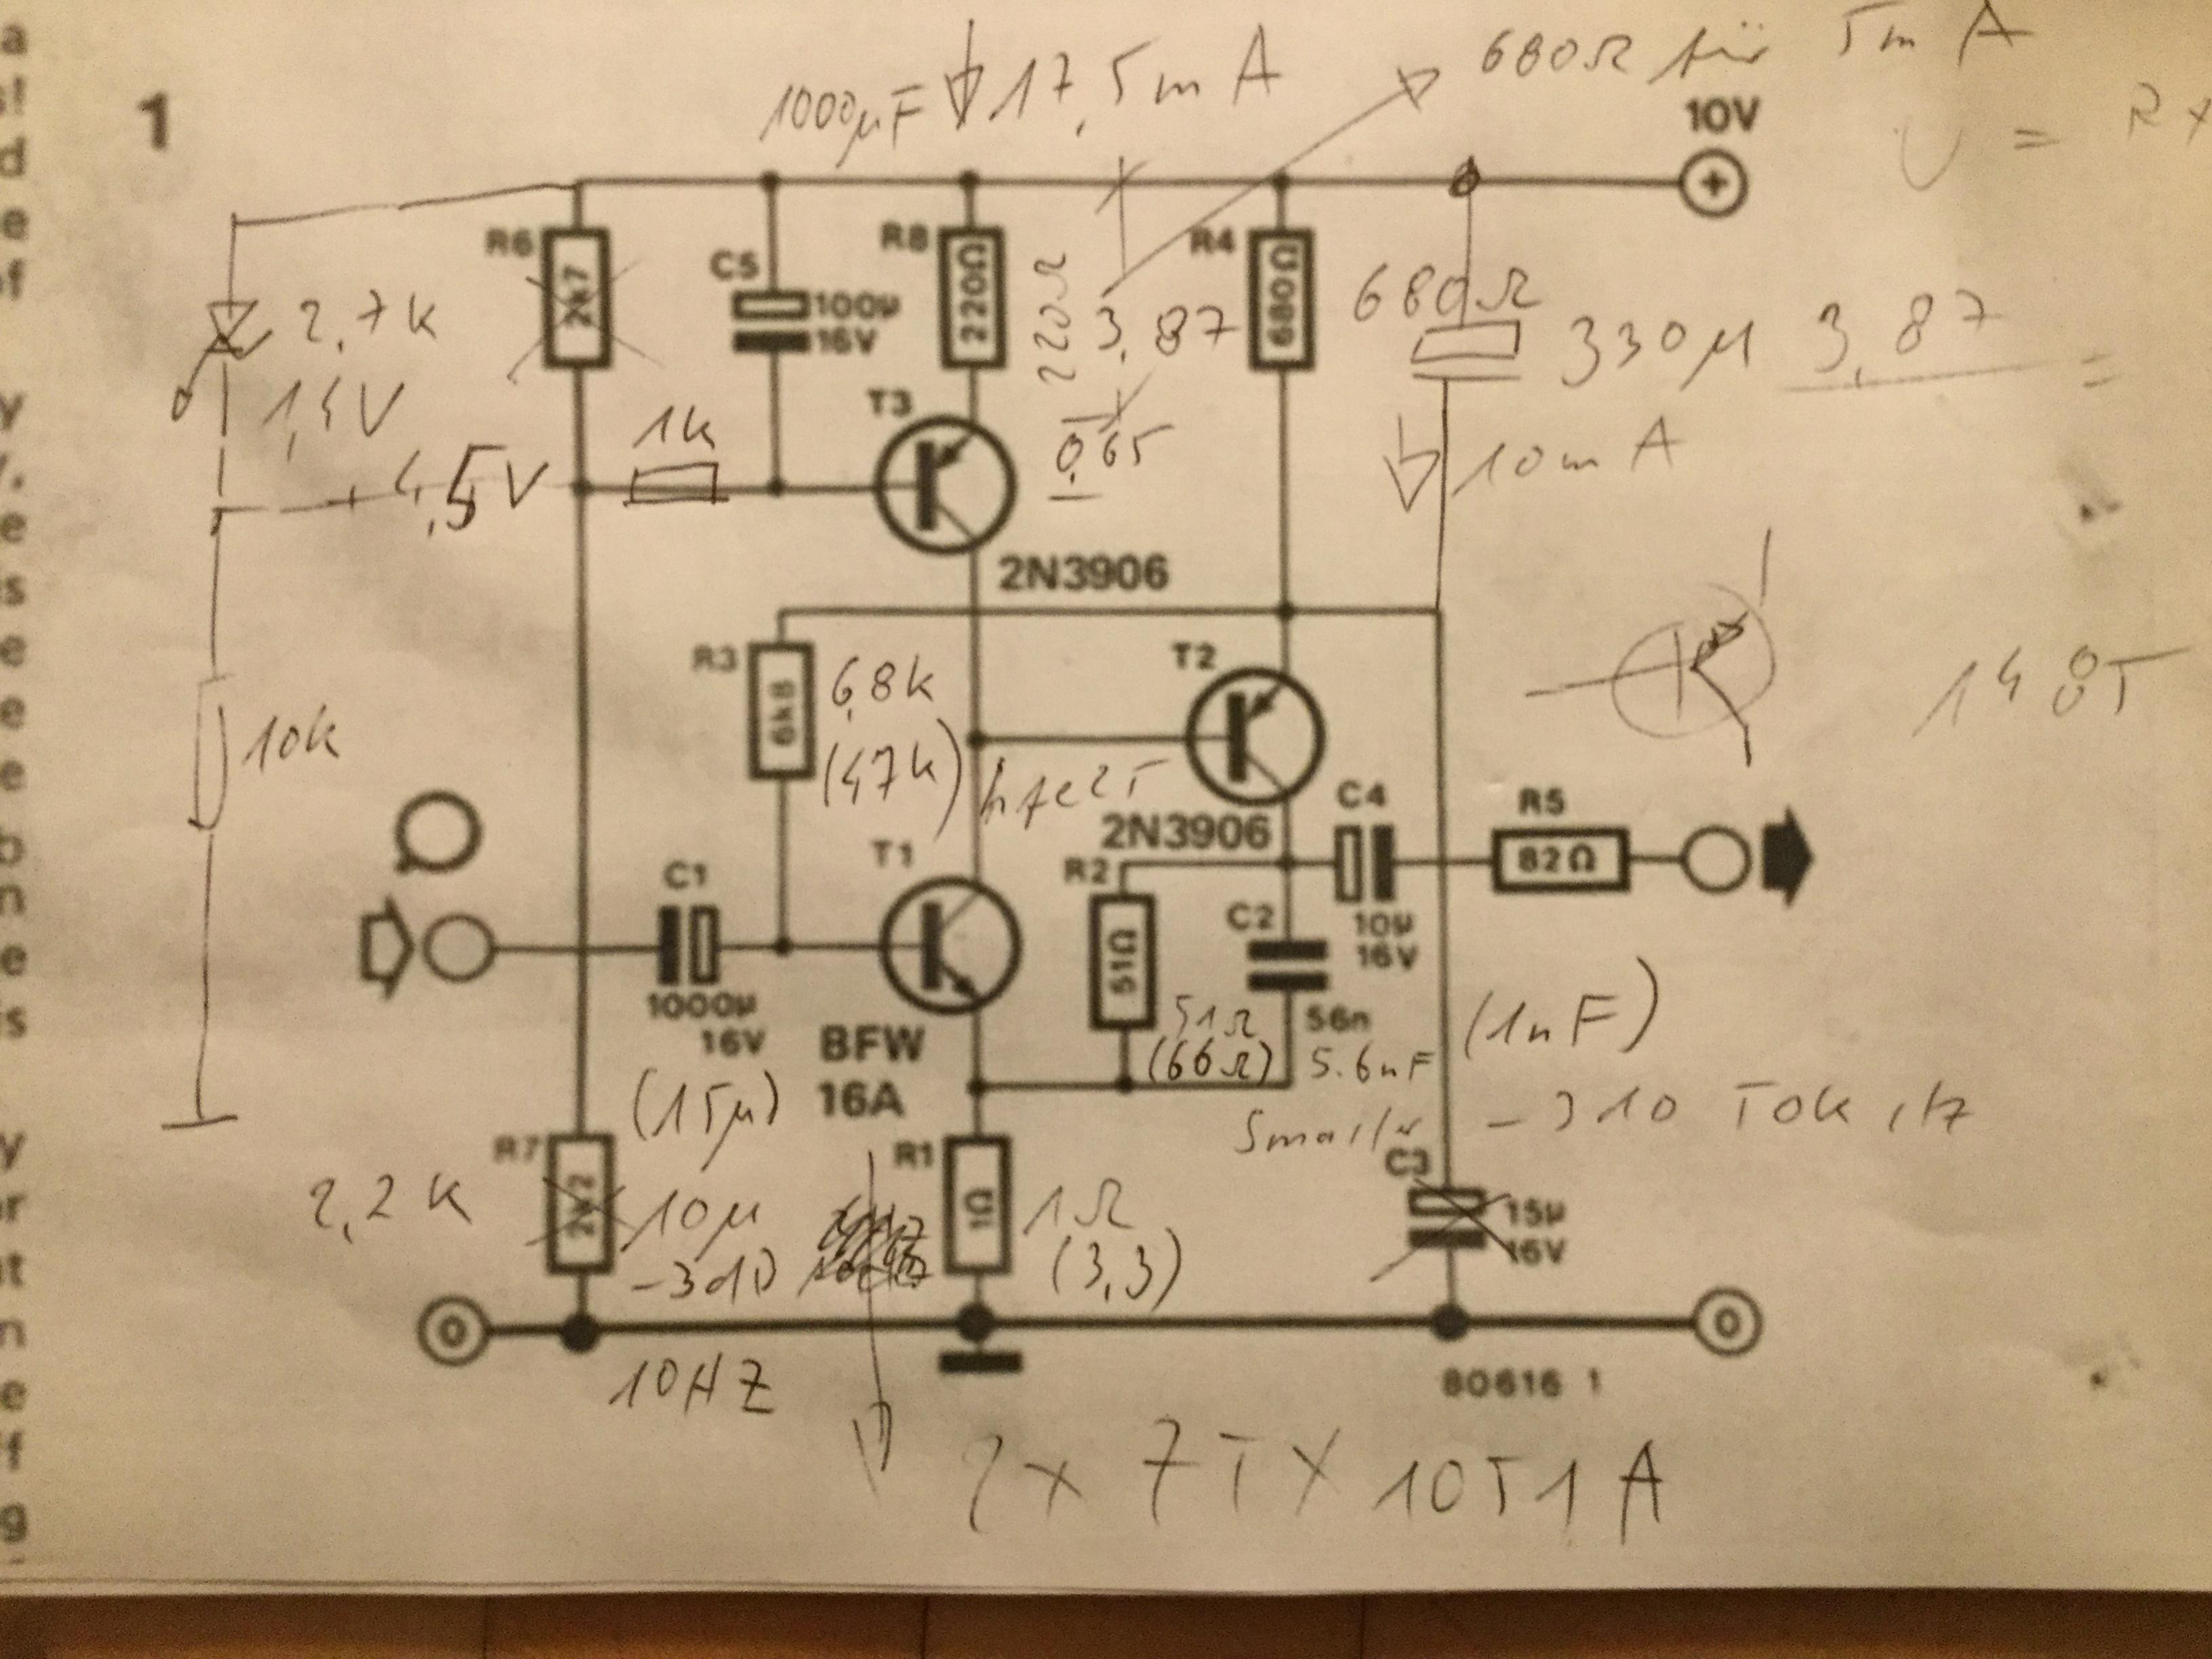 1000µF 17,5mA 680Ω für 5mA
1 10V
U = R x
R6 2k7
C5 100µ 16V
R8 220Ω 220Ω
R4 680Ω 680Ω
3,87
330µ 3,87 =
2,7k
1,4V
T3
0,65
10mA
4,5V 1k
2N3906
R3 6k8 6,8k
(47k)
T2
10k
2N3906
C4 10µ 16V
R5 82Ω
C1 1000µ 16V
(15µ)
T1
BFW
16A
R2 51Ω 51Ω
(66Ω)
C2 56n
5.6nF (1nF)
smaller
R7 2k2
2,2k 10µ
-3dB
R1 1Ω 1Ω
(3,3)
C3 15µ 16V
0 0
10HZ
80616 1